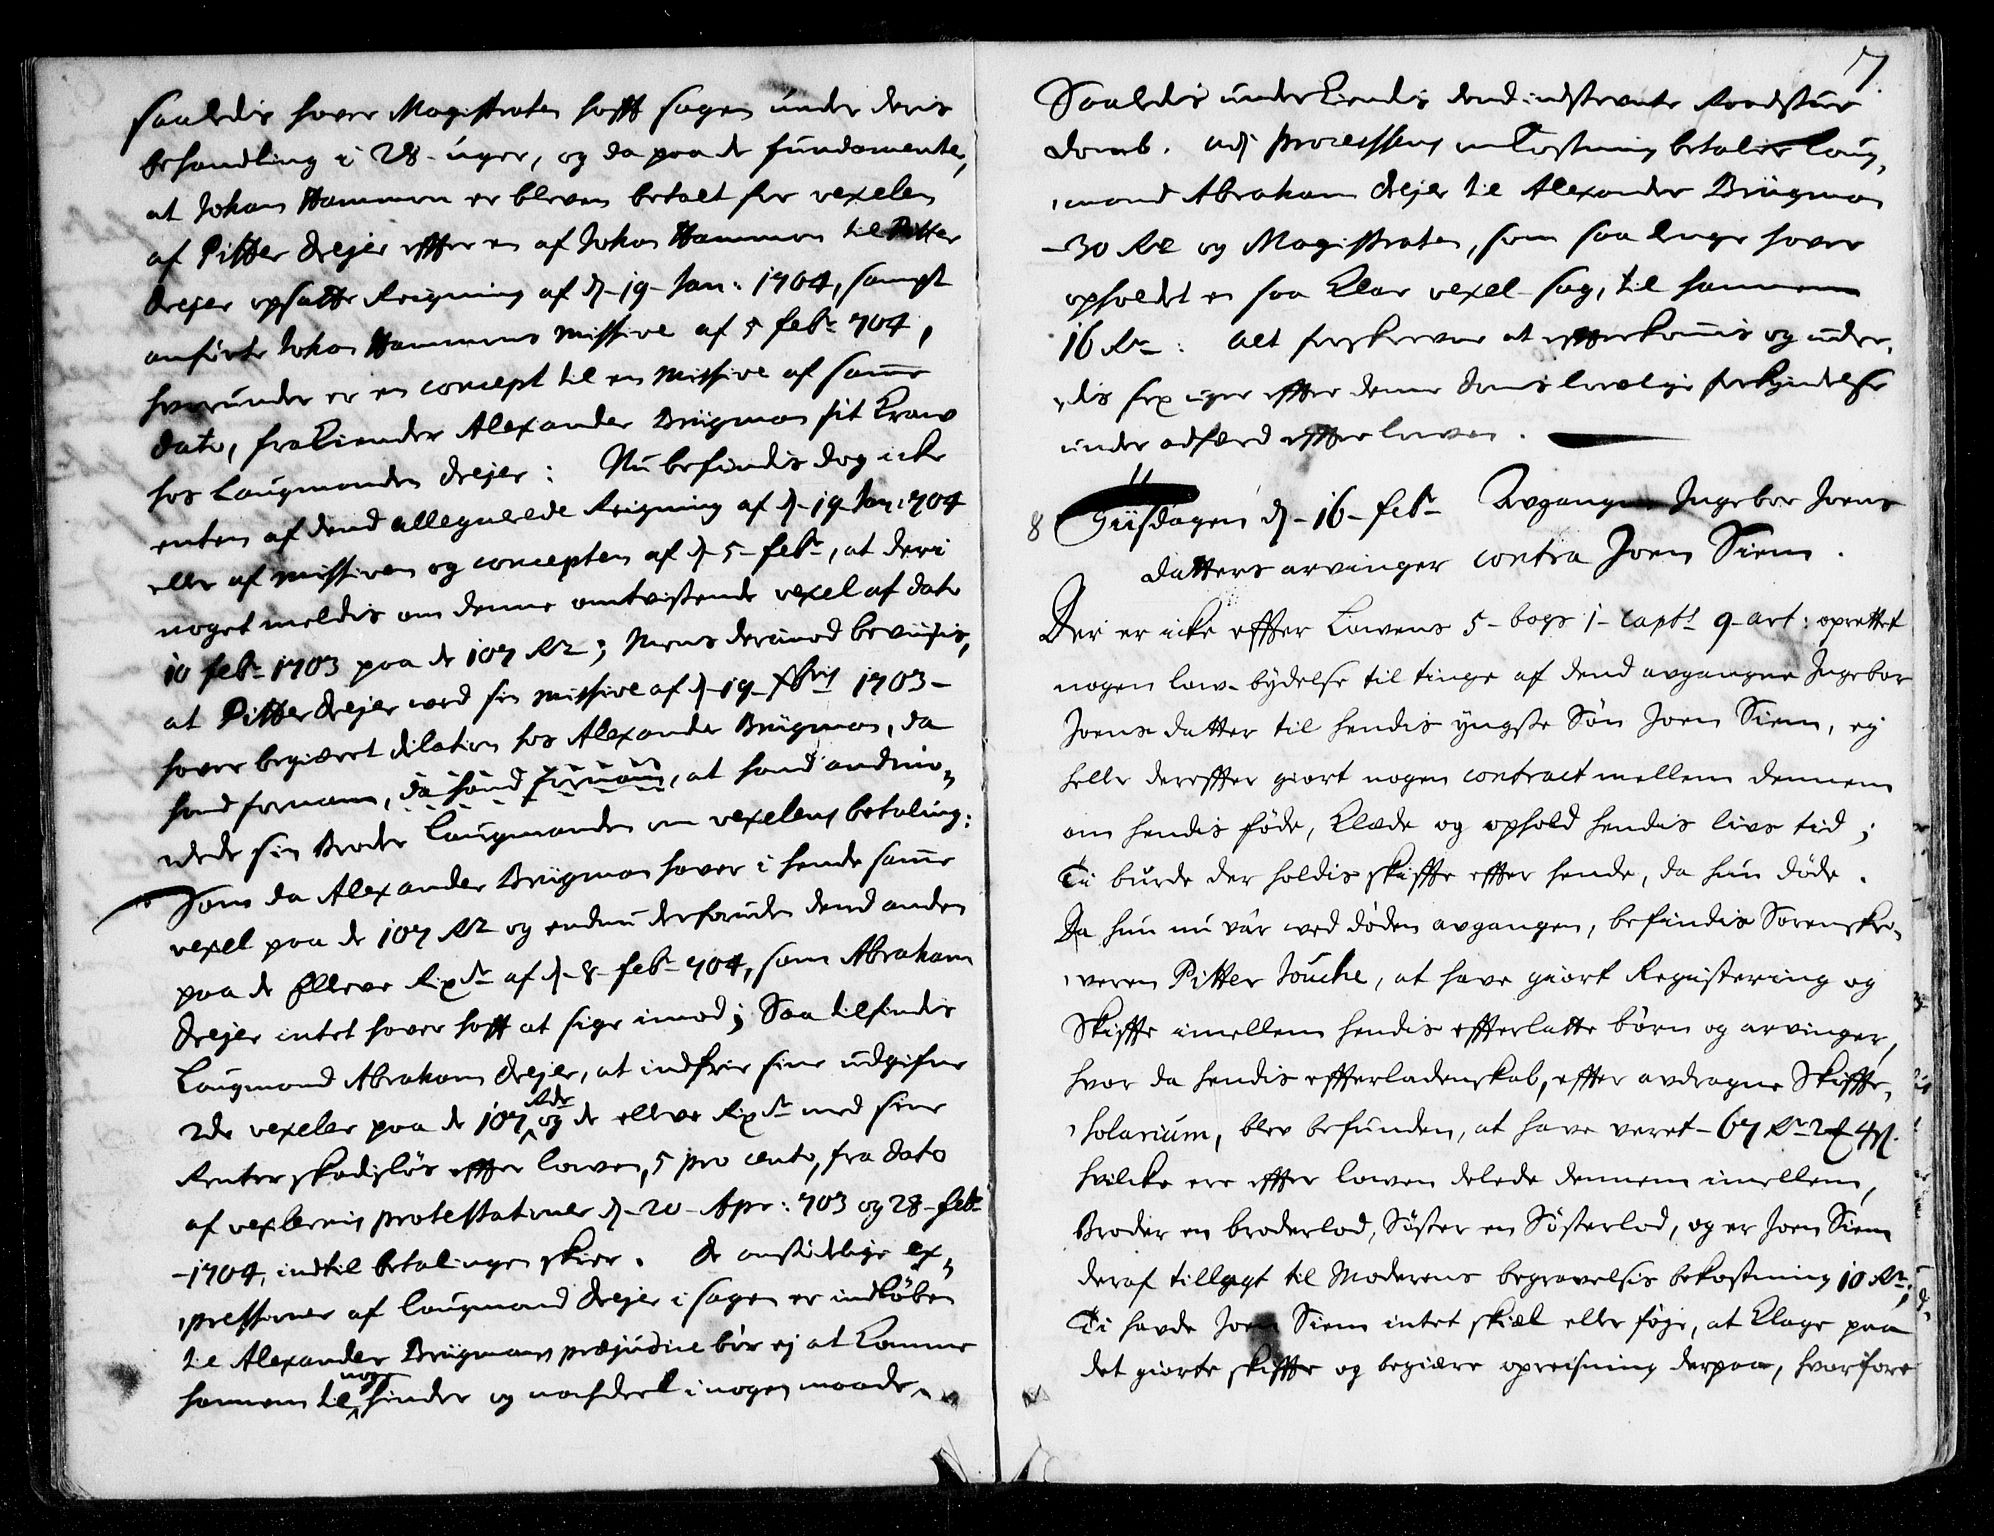 saaledis hover Magistraten hafft sagen under deris
behandling i 28 uger, og da paa de fundamenter,
at Johan Hammon er bleven betalt for vexelen
af Pitter Drejer effter en af Johan Hammon til Pitter
Drejer opsatte Reigning af d. 19 Jan: 1704, sampt
anførte Johan Hammons missive af 5 febr 704,
hvorunder er en concept til en missive af samme
dato, frakiender Alexander Brügman sit Kraw
hos Laugmanden Drejer: Nu befindis dog icke
enten af dend allegverede Reigning af d. 19 Jan: 1704
eller af missiven og concepten af d. 5 febr, at deri
noget meldis om denne omtvistende vexel af dato
10 febr 1703 paa de 107 Rdr; Mens derimod bevises,
at Pitter Drejer wed sin missive af d. 19 Xbris 1703
hover begiært dilation hos Alexander Brügman, da
hand fornam, da hand fornam, at hand andmo-
dede sin Broder Laugmanden om vexelens betaling:
Som da Alexander Brügman hover i hende samme
vexel paa de 107 Rdr og endnu desforuden dend anden
paa de Elleve Rixdr af d. 8 febr 704, som Abraham
Drejer intet hover hafft at sige imod; Saa tilfindis
Laugmand Abraham Drejer, at indfrie sine udgifne
2de vexeler paa de 107 Rdr og de elleve Rixdr med sine
Renter skadisløs effter lowen, 5 pro cento, fra dato
af vexlernis protestationer d. 20 Apr: 703 og 28 febr
1704, indtil betalingen skier. De anstødelige ex-
pressioner af Laugmand Drejer i sagen er indløben
til Alexander Brügmans præjudice bør ej at komme
hannem til noget hinder og nachdeel i nogen maade.
7.
Saaledis underkiendis dend indstevnte Raadstue
domb. udj Processens omkostning betaler Laug-
mand Abraham Drejer til Alexander Brügman
30 Rdr og Magistraten, som saa lenge hover
opholdet en saa klar vexel sag, til hannem
16 Rdr: Alt forskrevne at effterkommis og under-
dis sex uger effter denne doms lovlige forkyndelse
under adfærd effter lowen.
8 Tiisdagen d. 16 febr Avgangne Ingebor Joens
datters arvinger contra Joen Siem.
Der er icke effter Lowens 5 bogs 1 capts 9 art: oprettet
nogen low-bydelse til tinge af dend avgangne Ingebor
Joens datter til hendis yngste Søn Joen Siem, ej
heller dereffter giort nogen contract mellem dennem
om hendis føde, Klæde og ophold hendis livs tid;
Ti burde der holdis skiffte effter hende, da hun døde.
Da hun nu var wed døden avgangen, befindis Sorenskri-
veren Pitter Touche, at have giort Registering og
Skiffte imellem hendis effterlatte børn og arvinger,
hvor da hendis effterladenskab, effter avdragne Skiffte-
solarium, blev befunden, at have veret 67 Rdr 2 4
hvilcke ere effter lowen delede dennem imellem,
Broder en broderlod, Søster en Søsterlod, og er Joen Siem
deraf tillagt til Moderens begravelsis bekostning 10 Rdr;
Ti havde Joen Siem intet skiæl eller føje, at klage paa
det giorte skiffte og begiære opreisning derpaa, hvorfore